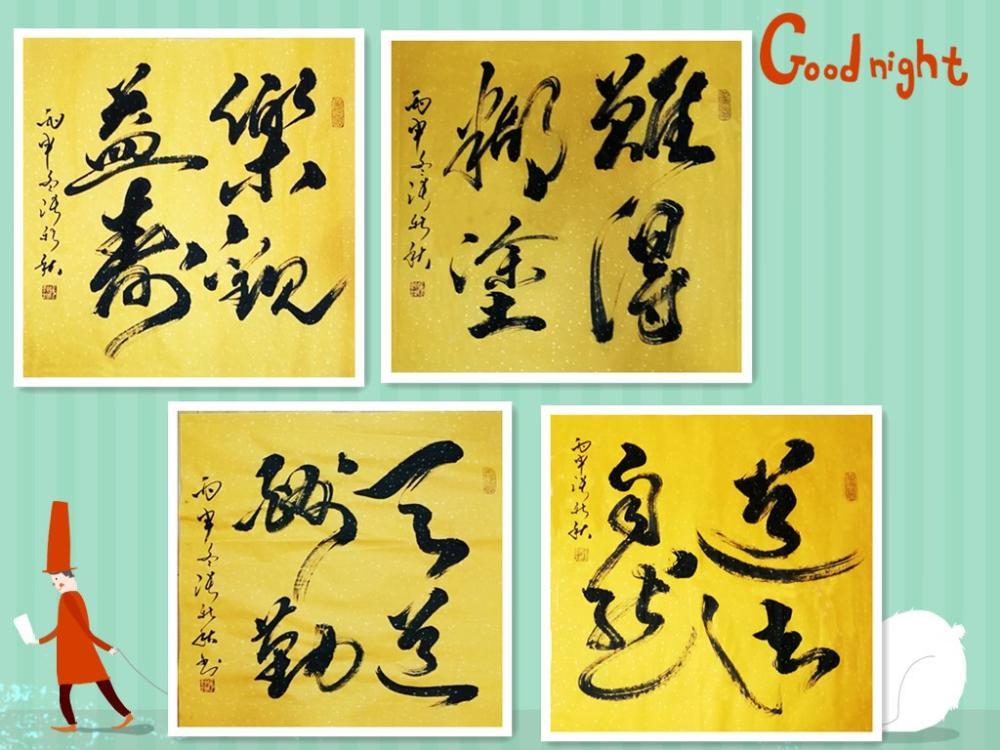 Good night
樂觀
益壽
丙申冬
難得
糊塗
丙申冬
天道
酬勤
丙申冬
道法
自然
丙申